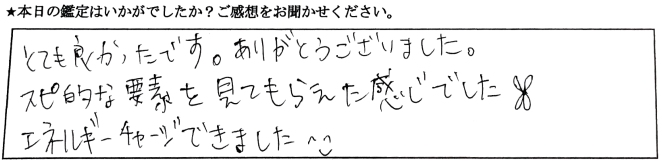 ★本日の鑑定はいかがでしたか？ご感想をお聞かせください。
とても良かったです。ありがとうございました。
スピ的な要素を見てもらえた感じでした
エネルギーチャージできました